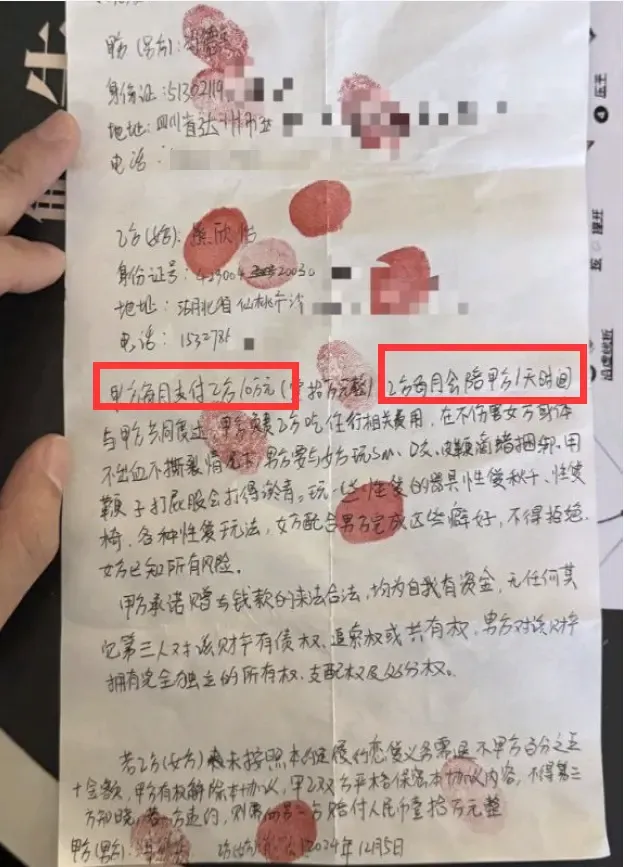 甲方(男方):
身份证:51302119
地址:四川省达州市
电话:
乙方(女方): 欣怡
身份证号:429004 20030
地址:湖北省仙桃市
电话:153278
甲方每月支付乙方10万元(壹拾万元整)乙方每月会陪甲方1天时间
与甲方共同度过,甲方负责乙方吃住行相关费用,在不伤害女方身体
不出血不撕裂情况下男方要与女方玩sm、 皮鞭滴蜡捆绑.用
鞭子打屁股会打得淤青。玩一些性爱的器具性爱秋千、性爱
椅.各种性爱玩法,女方配合男方完成这些癖好,不得拒绝.
女方已知所有风险。
甲方承诺赠与钱款的来法合法,均为自我有资金,无任何其
它第三人对该财产有债权、追索权或共有权,男方对该财产
拥有完全独立的所有权、支配权及处分权。
若乙方(女方) 未按照本 履行恋爱义务需退还甲方百分之五
十金额,甲方有权解除本协议,甲乙双方严格保密本协议内容,不得第三
方知晓,若一方违约,则 另一方赔付人民币壹拾万元整
甲方(男方): 乙方(女方) 2024年12月5日
生
压平